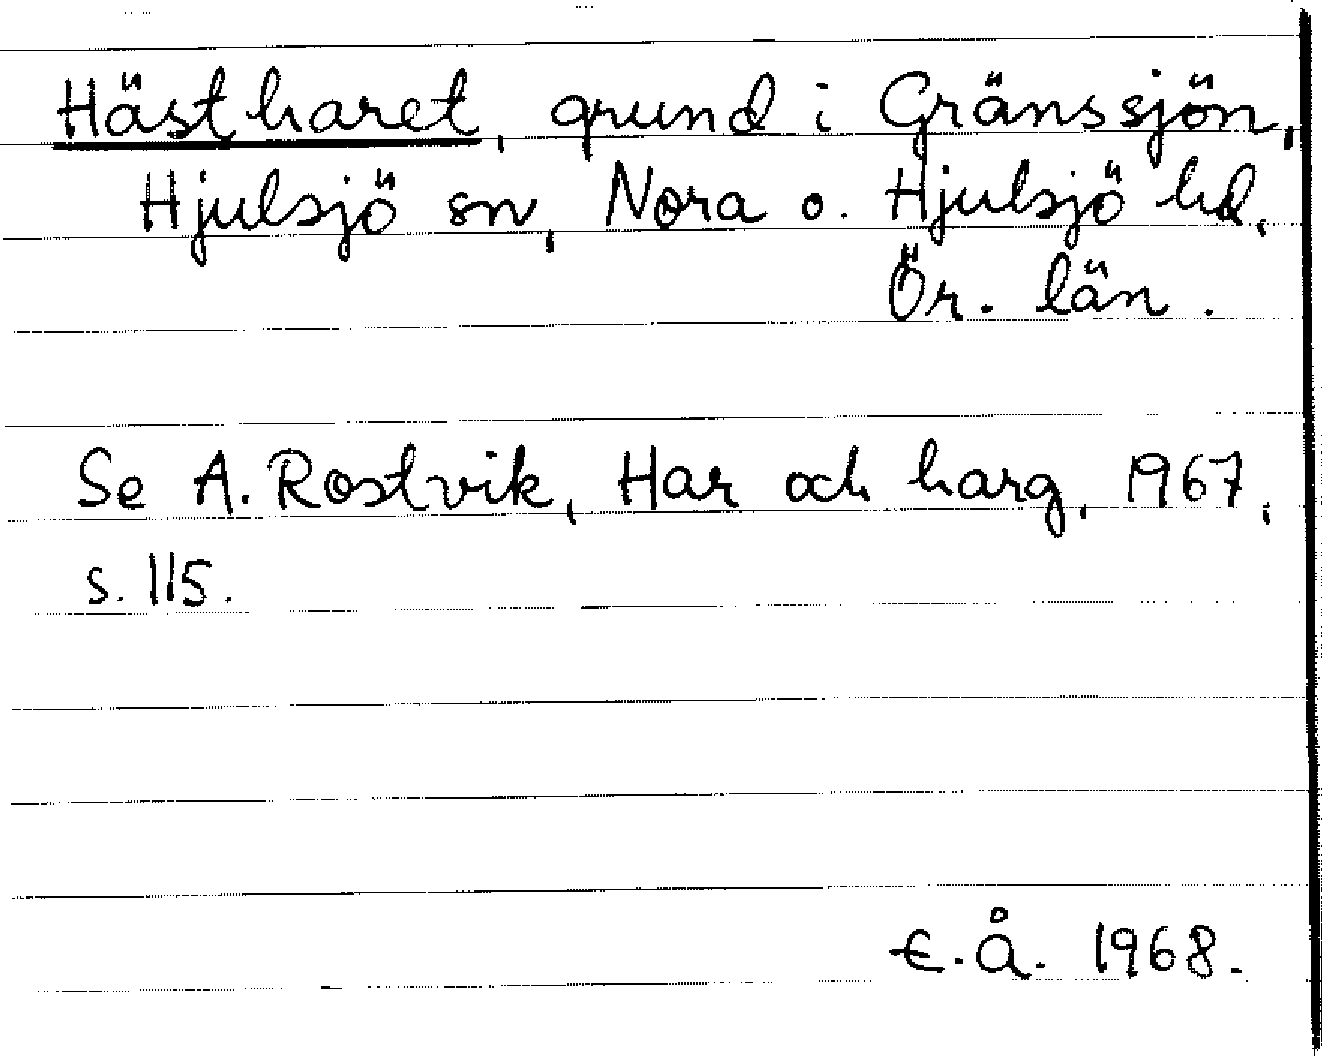 Hästharet, grund i Gränssjön,
Hjulsjö sn, Nora o. Hjulsjö hd,
Ör. län.
Se A. Rostvik, Har och harg, 1967,
s. 115.
E.Å. 1968.